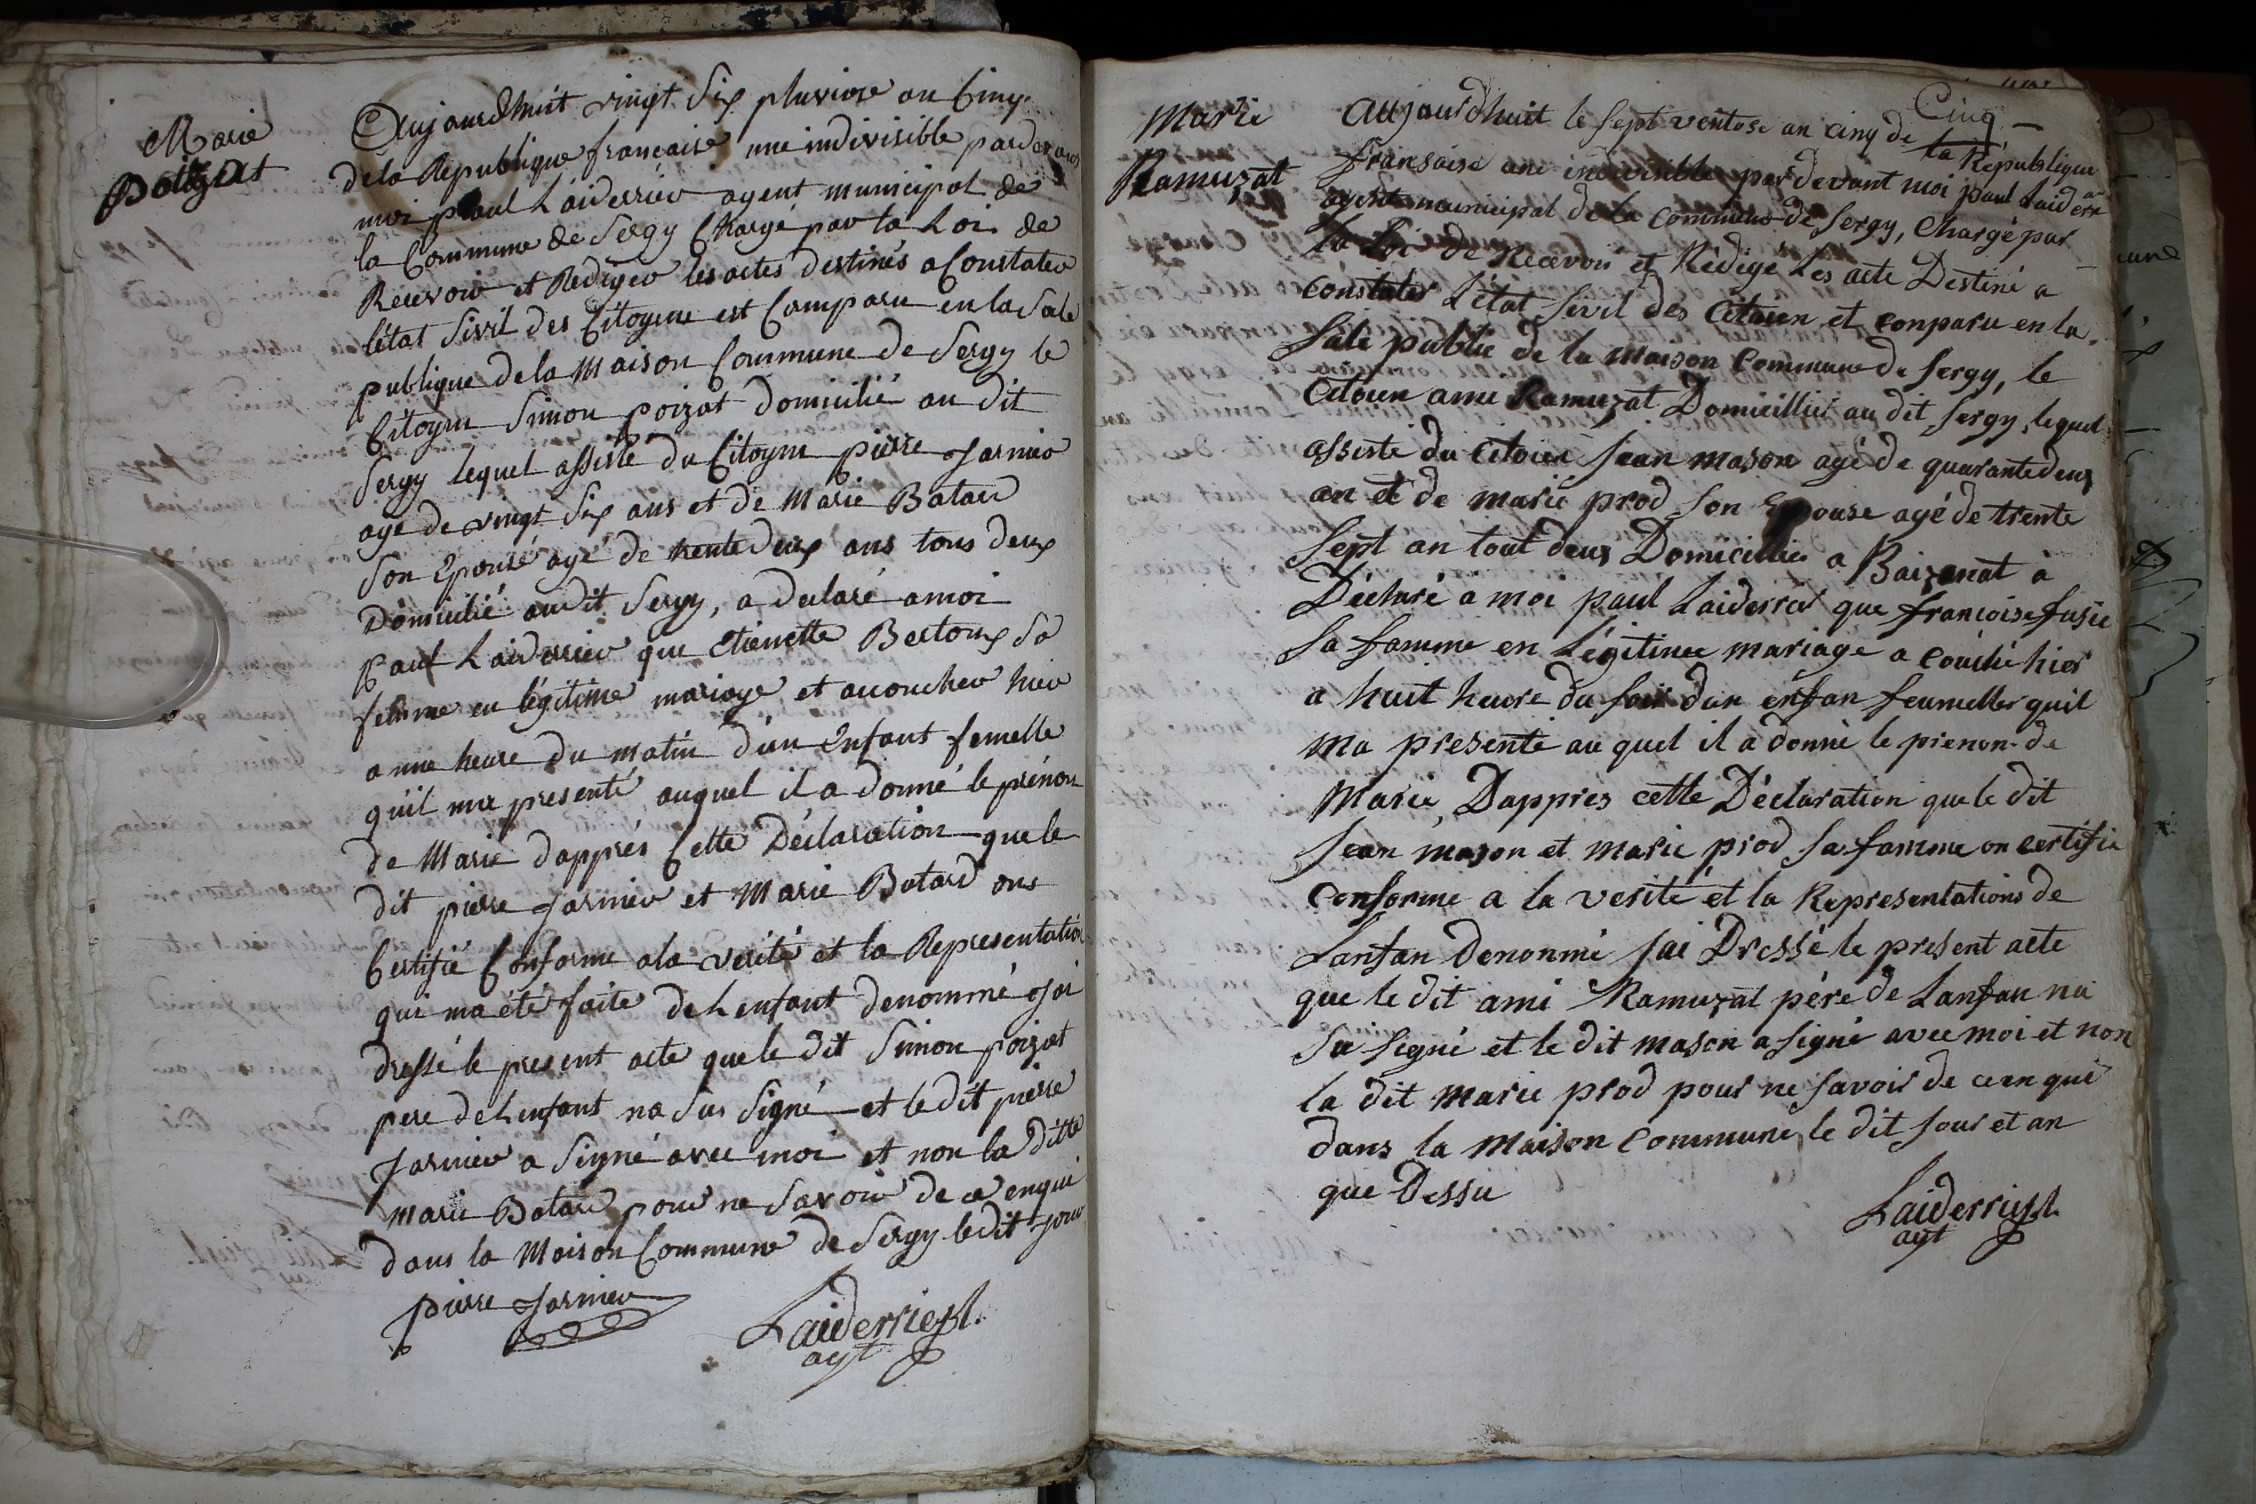 Marie
Poitzat
Aujourdhuit vingt Six pluviose an Cinq
de la Republique francaise une indivisible pardevant
moi paul Laiderrier agent municipal de
la Commune de Sergy Chargé par la Loi de
Recevoir et Rediger les actes destinés a Constater
létat Sivil des Citoyens est Comparu en la Sale
publique de la Maison Commune de Sergy le
Citoyen Simon poizat domicilié au dit
Sergy lequel assisté du Citoyen pierre Jarnier
agé de vingt Six ans et de Marie Batard
Son Epouse agé de trente deux ans tous deux
Domicilié au dit Sergy, a declaré a moi
paul Laiderrier que Etienette Bertoux Sa
femme en légitime mariage et accoucher hier
a une heure du matin d'un Enfant femelle
qu'il ma presenté auquel il a donné le prénom
de Marie d'apprés Cette Déclaration que le
dit pierre Jarnier et Marie Batard ons
Certifié Conforme a la verité et la Representation
qui ma été faite de Lenfant denommé Jai
dressé le present acte que le dit Simon poizat
pere de Lenfant na Sus Signé et le dit pierre
Jarnier a Signé avec moi et non la ditte
Marie Batard pour ne Savoir de ce enqui
dans la Maison Commune de Sergy le dit jour
pierre Jarnier
Laiderrier
agt
Cinq
Marie
Ramuzat
Aujourd'huit le Sept ventose an cinq de la République
fransaise une indivisible par devant moi paul Laiderr
agent municipal de la commune de Sergy, Chargé par
la Loi de Recevoir et Rédigé Les acte Destiné a
constater L'état Sevil des Citoien et conparu en la
Sale public de la maison commune de Sergy, le
Citoien ami Ramuzat Domicillié au dit Sergy, lequel
assisté du citoien Jean mason agé de quarante deux
an et de marie prod Son Epouse agé de trente
Sept an tout deux Domicillié a Baizenat à
Déclaré a moi paul Laiderrier que francoise fusie
Sa famme en Légitimee mariage a couché hier
a huit heure du Soir d'un enfan feumeller quil
ma presenté au quel il a donné le prenon de
Marie, D'apprés cette Déclaration que le dit
Jean mason et marie prod Sa famme on certifié
conforme a la verité et la Representations de
Lanfan denonmé Jai Dressé le present acte
que le dit ami Ramuzat pére de Lanfan na
Su Signé et le dit mason a Signé avec moi et non
la dit marie prod pour ne Savoir de ce en qui
dans la maison commune, le dit Jour et an
que Dessu
Laiderrier
agt